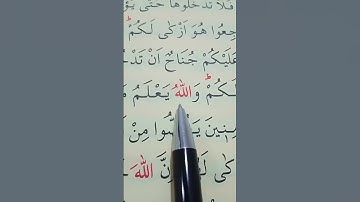 فَلَا تَدْخُلُوهَا حَتّٰى يُؤْ
جِعُوا هُوَ اَزْكٰى لَكُمْ
عَلَيْكُمْ جُنَاحٌ اَنْ تَدْخُ
لَكُمْ وَاللّٰهُ يَعْلَمُ مَ
مِنٖينَ مِنْ
كٰى اللّٰهَ